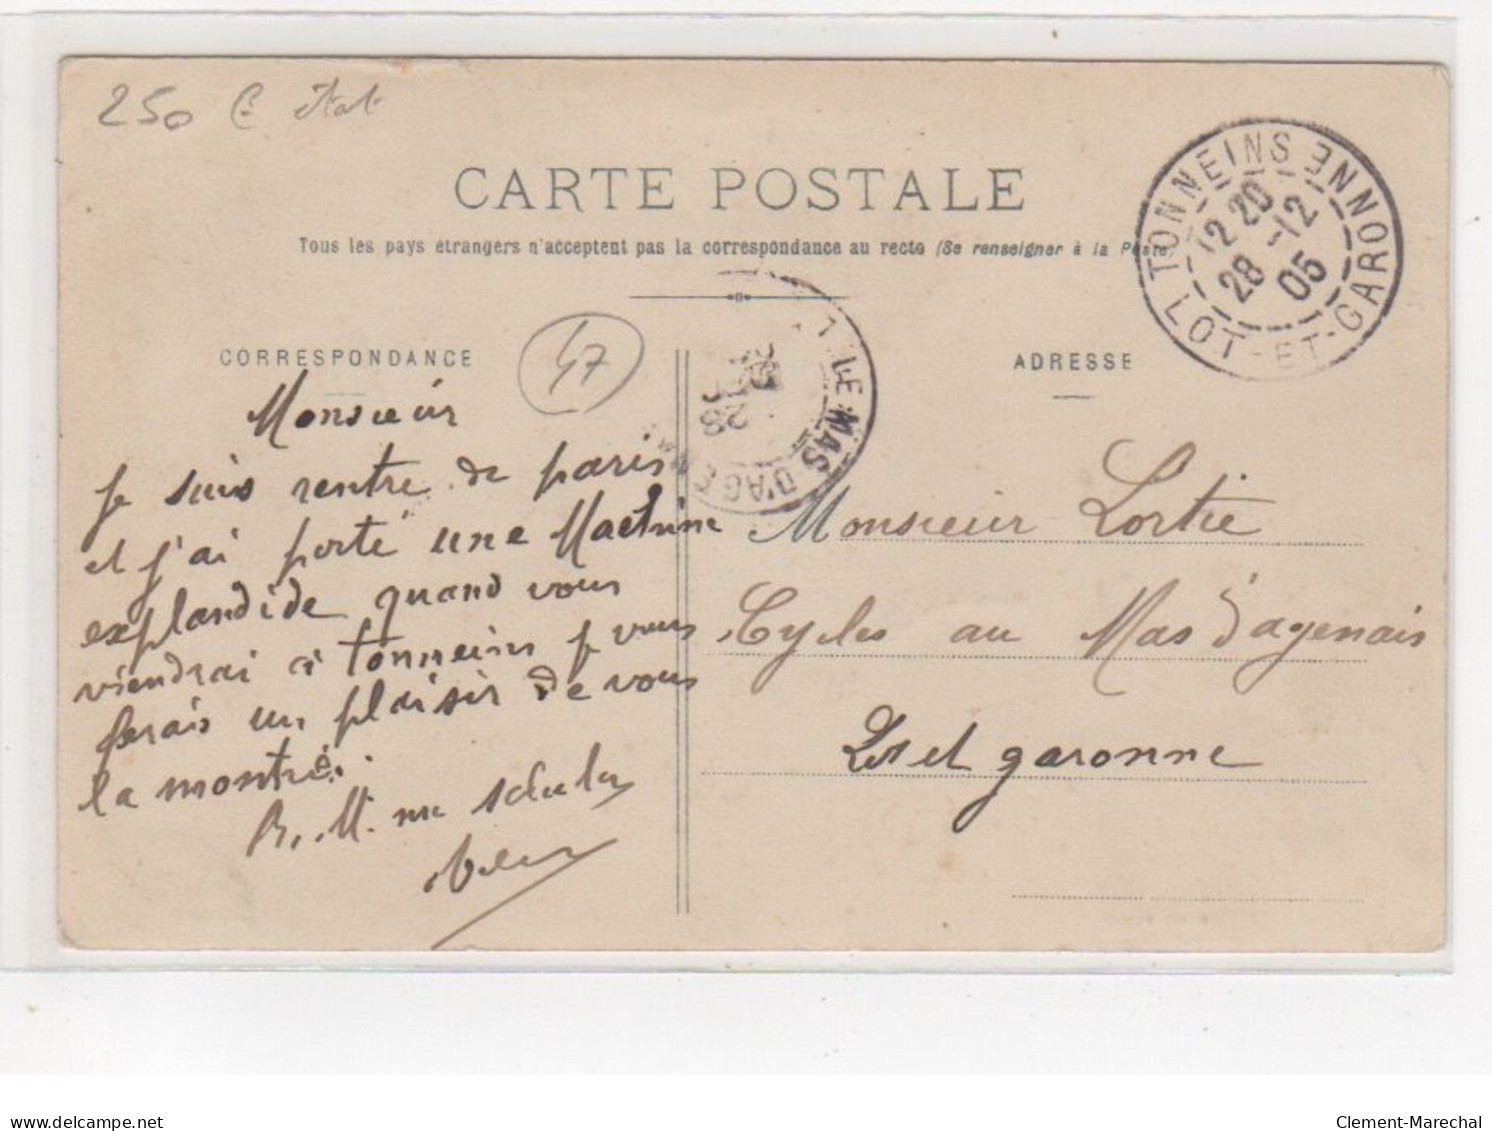 250 € état
CARTE POSTALE
Tous les pays étrangers n'acceptent pas la correspondance au recto (Se renseigner à la Poste)
TONNEINS LOT-ET-GARONNE
12 20
28 -12
05
CORRESPONDANCE
47
LE MAS D'AG
28
ADRESSE
Monsieur
je suis rentre de paris
et j'ai porté une Machine
explandide quand vous
viendrai à tonneins je vous
ferais un plaisir de vous
la montré.
Monsieur Lortie
Cycles au Mas d'agenais
Lot et garonne
delcampe.net
Clement-Marechal